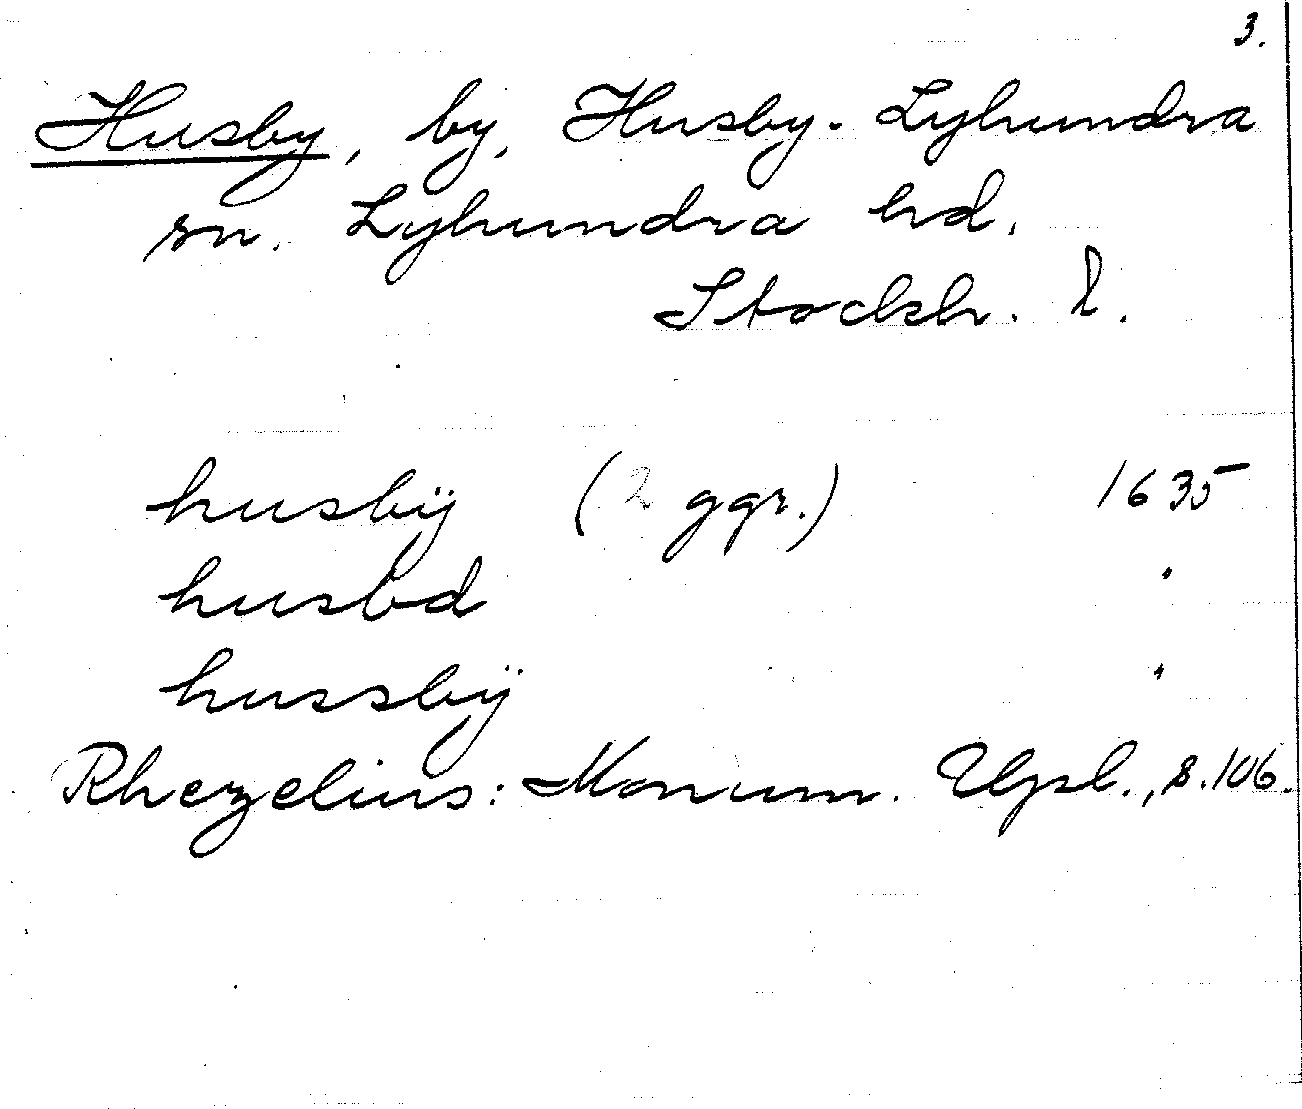 3.
Husby, by, Husby-Lyhundra
sn. Lyhundra hd.
Stockh. l.
husbÿ (2 ggr.) 1635
husbd "
hussbÿ "
Rhezelius: Monum. Upl., s. 106.